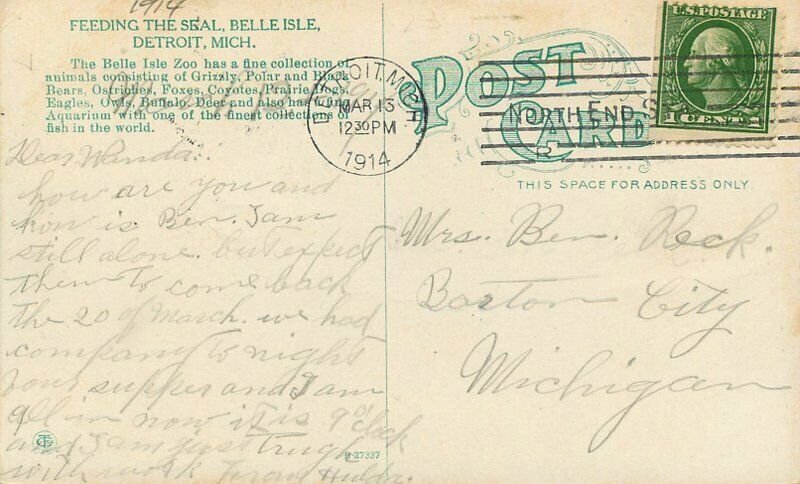 1914
FEEDING THE SEAL, BELLE ISLE,
DETROIT, MICH.
The Belle Isle Zoo has a fine collection of
animals consisting of Grizzly, Polar and Black
Bears, Ostriches, Foxes, Coyotes, Prairie Dogs,
Eagles, Owls, Buffalo, Deer and also has an
Aquarium with one of the finest collections of
fish in the world.
Dear Wanda.
how are you and
how is Ben. I am
still alone. but expect
them to come back
the 20 of March. we had
company to night
for supper and I am
all in now it is 9 o'clock
and I am just
with work from Hulda.
DETROIT, MICH
MAR 13
12 30 PM
1914
NORTH END S
POST
CARD
U.S. POSTAGE
1 CENT 1
THIS SPACE FOR ADDRESS ONLY.
Mrs. Ben. Reck.
Boston City
Michigan
R-27337